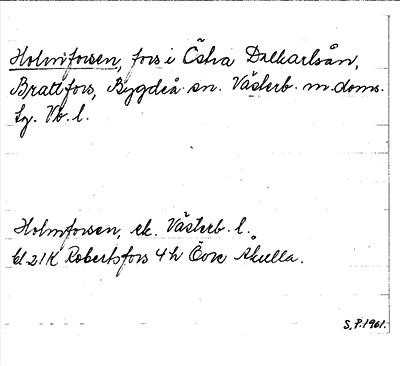 Holmforsen, fors i Östra Dalkarlsån,
Brattfors, Bygdeå sn. Västerb. m. doms.
Lg. Vb. l.
Holmforsen, ek. Västerb. l.
bl 21K Robertsfors 4h Övre Åkulla.
S.P. 1961.